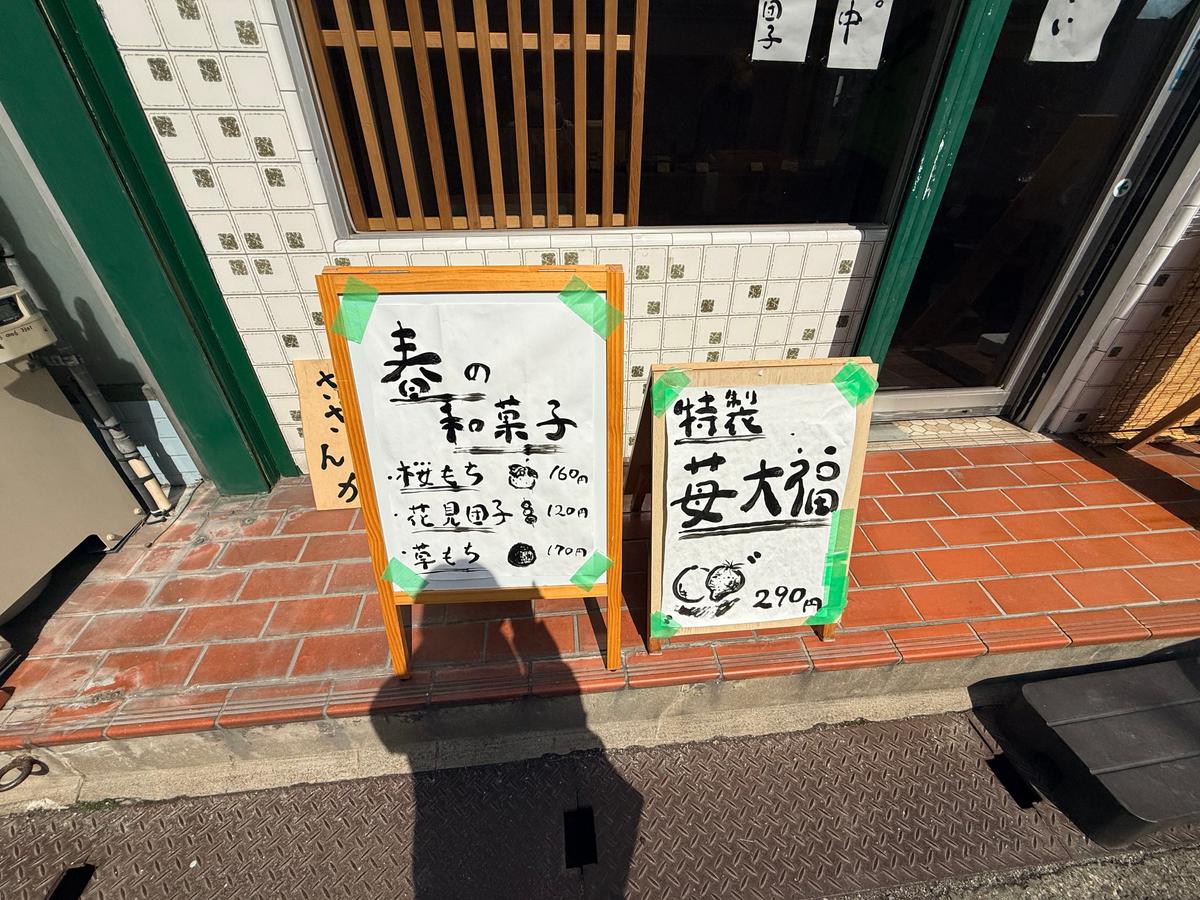 団子
中。
い
ささんか
春の
和菓子
・桜もち 160円
・花見団子 120円
・草もち 170円
特製
苺大福
290円